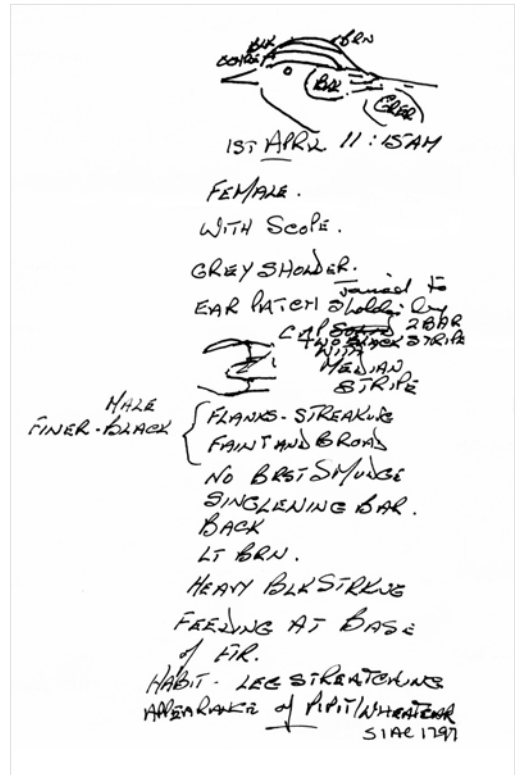 BLK BRN
BLK GREY
1ST APRIL 11:15AM
FEMALE.
WITH SCOPE.
GREY SHOLDER.
EAR PATCH Joined to
Sholder by
CAP 2 BAR
BLACK STRIPE
WITH
MEDIAN
STRIPE
MALE
FINER-BLACK
FLANKS-STREAKING
FAINT AND BROAD
NO BRST SMUDGE
SINGLE WING BAR.
BACK
LT BRN.
HEAVY BLK STRKING
FEEDING AT BASE
of FIR.
HABIT- LEG STREATCHING
APPEARANCE of PIPIT/WHEATEAR